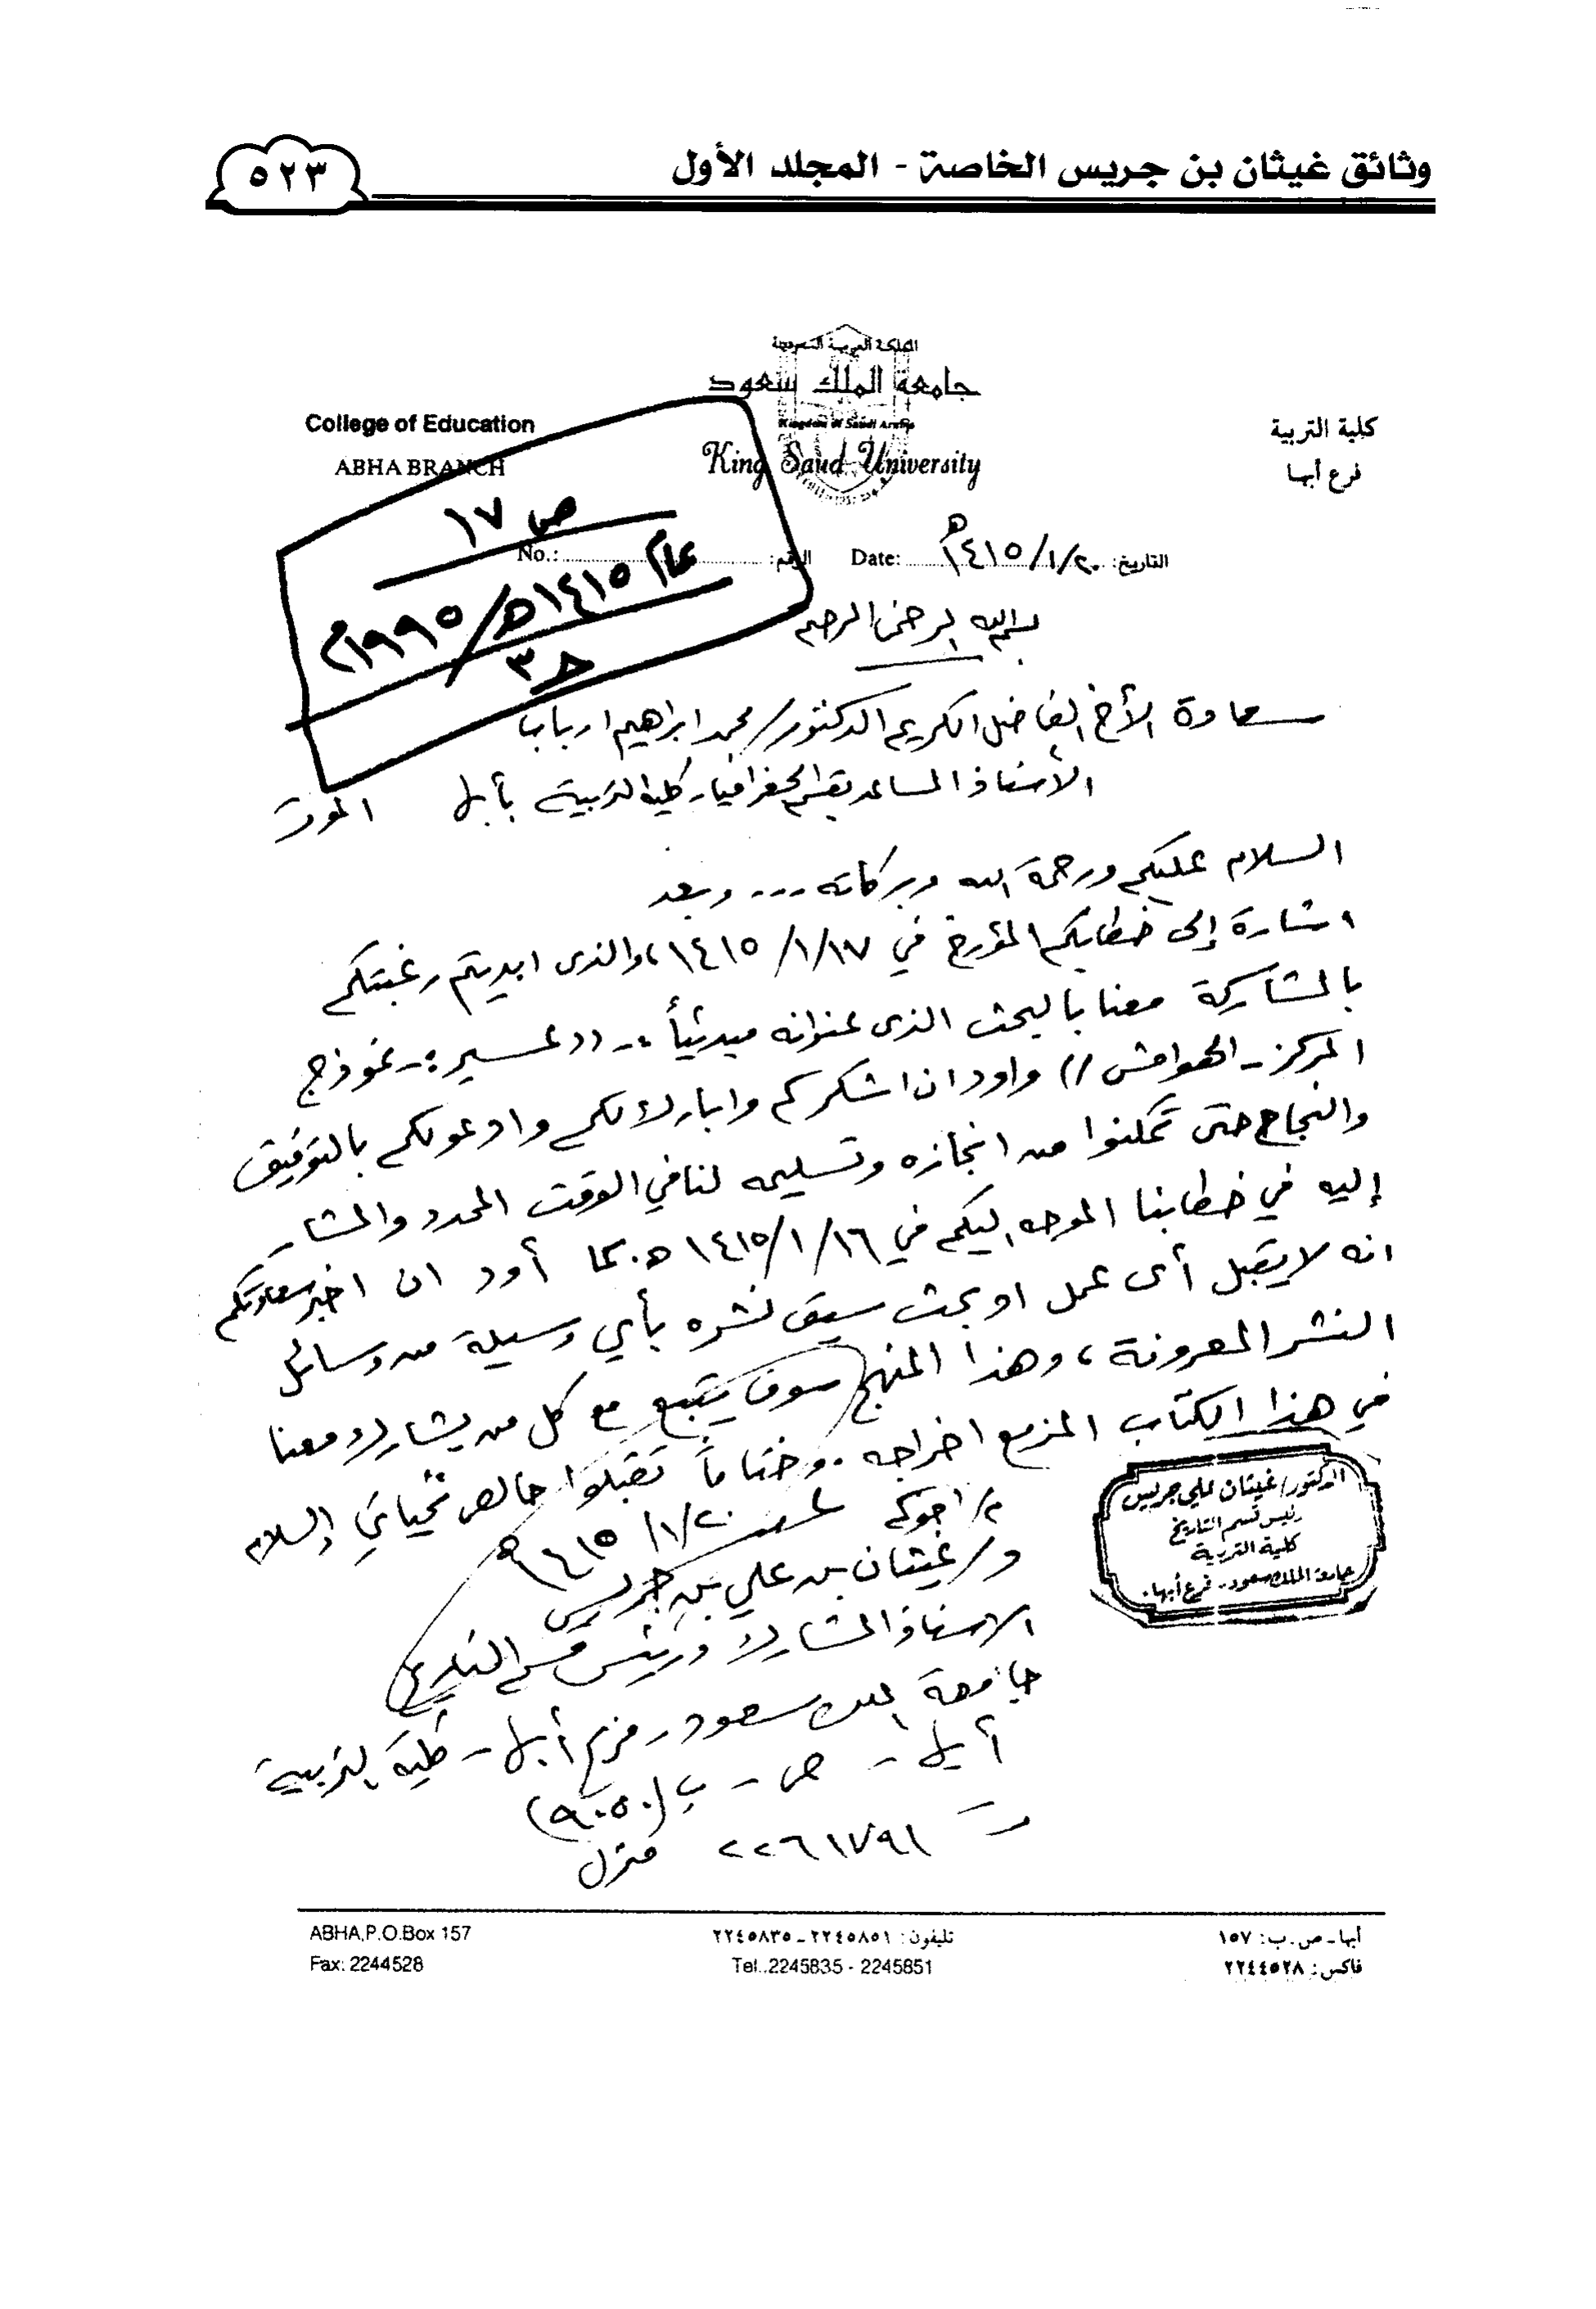 وثائق غيثان بن جريس الخاصة - المجلد الأول
٥٢٣
المملكة العربية السعودية
جامعة الملك سعود
Kingdom of Saudi Arabia
King Saud University
كلية التربية
فرع أبها
College of Education
ABHA BRANCH
التاريخ: ١٤١٥/١/٢٠هـ Date:
الرقم: No.:
ص ١٧
عام ١٤١٥هـ/١٩٩٥م
ح٣
بسم الله الرحمن الرحيم
سعادة الأخ الفاضل الكريم الدكتور/ محمد ابراهيم ارباب
الأستاذ المساعد بقسم الجغرافيا - كلية التربية بأبها الموقر
السلام عليكم ورحمة الله وبركاته ... وبعد
اشارة إلى خطابكم المؤرخ في ١٤١٥/١/١٧، والذى ابديتم رغبتكم
بالمشاركة معنا بالبحث الذى عنوانه مبدئياً :- ((عسير :- نموذج
المركز - الهوامش)) واود ان اشكركم وابارك لكم وادعو لكم بالتوفيق
والنجاح حتى تتمكنوا من انجازه وتسليمه لنا في الوقت المحدد والمشار
إليه في خطابنا الموجه اليكم في ١٤١٥/١/١٦هـ. كما أود ان اخبر سعادتكم
انه لا يقبل أى عمل او بحث سبق نشره بأي وسيلة من وسائل
النشر المعروفة، وهذا المنهج سوف يتبع مع كل من يشارك معنا
في هذا الكتاب المزمع اخراجه. وختاماً تقبلوا خالص تحياتي والسلام
اخوكم
١٤١٥/١/٢٠هـ
د/ غيثان بن علي بن جريس
الاستاذ المشارك ورئيس قسم التاريخ
جامعة الملك سعود - فرع أبها - كلية التربية
أبها - ص - ب (٩٠٥٠)
ت ٢٢٦١٧٩١ منزل
الدكتور/ غيثان علي جريس
رئيس قسم التاريخ
كلية التربية
جامعة الملك سعود - فرع أبها.
أبها - ص.ب: ١٥٧
فاكس: ٢٢٤٤٥٢٨
تليفون: ٢٢٤٥٨٥١ - ٢٢٤٥٨٣٥
Tel..2245835 - 2245851
ABHA,P.O.Box 157
Fax: 2244528